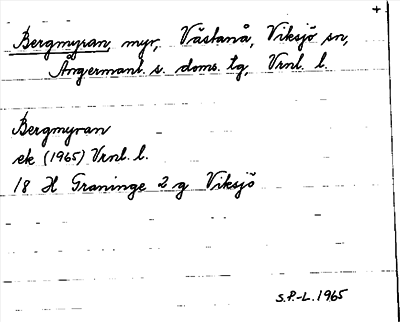 +
Bergmyran, myr, Västanå, Viksjö sn,
Ångermanl. s. doms. lg, Vrnl. l.
Bergmyran
ek (1965) Vrnl. l.
18 H Graninge 2 g Viksjö
S.P.-L. 1965